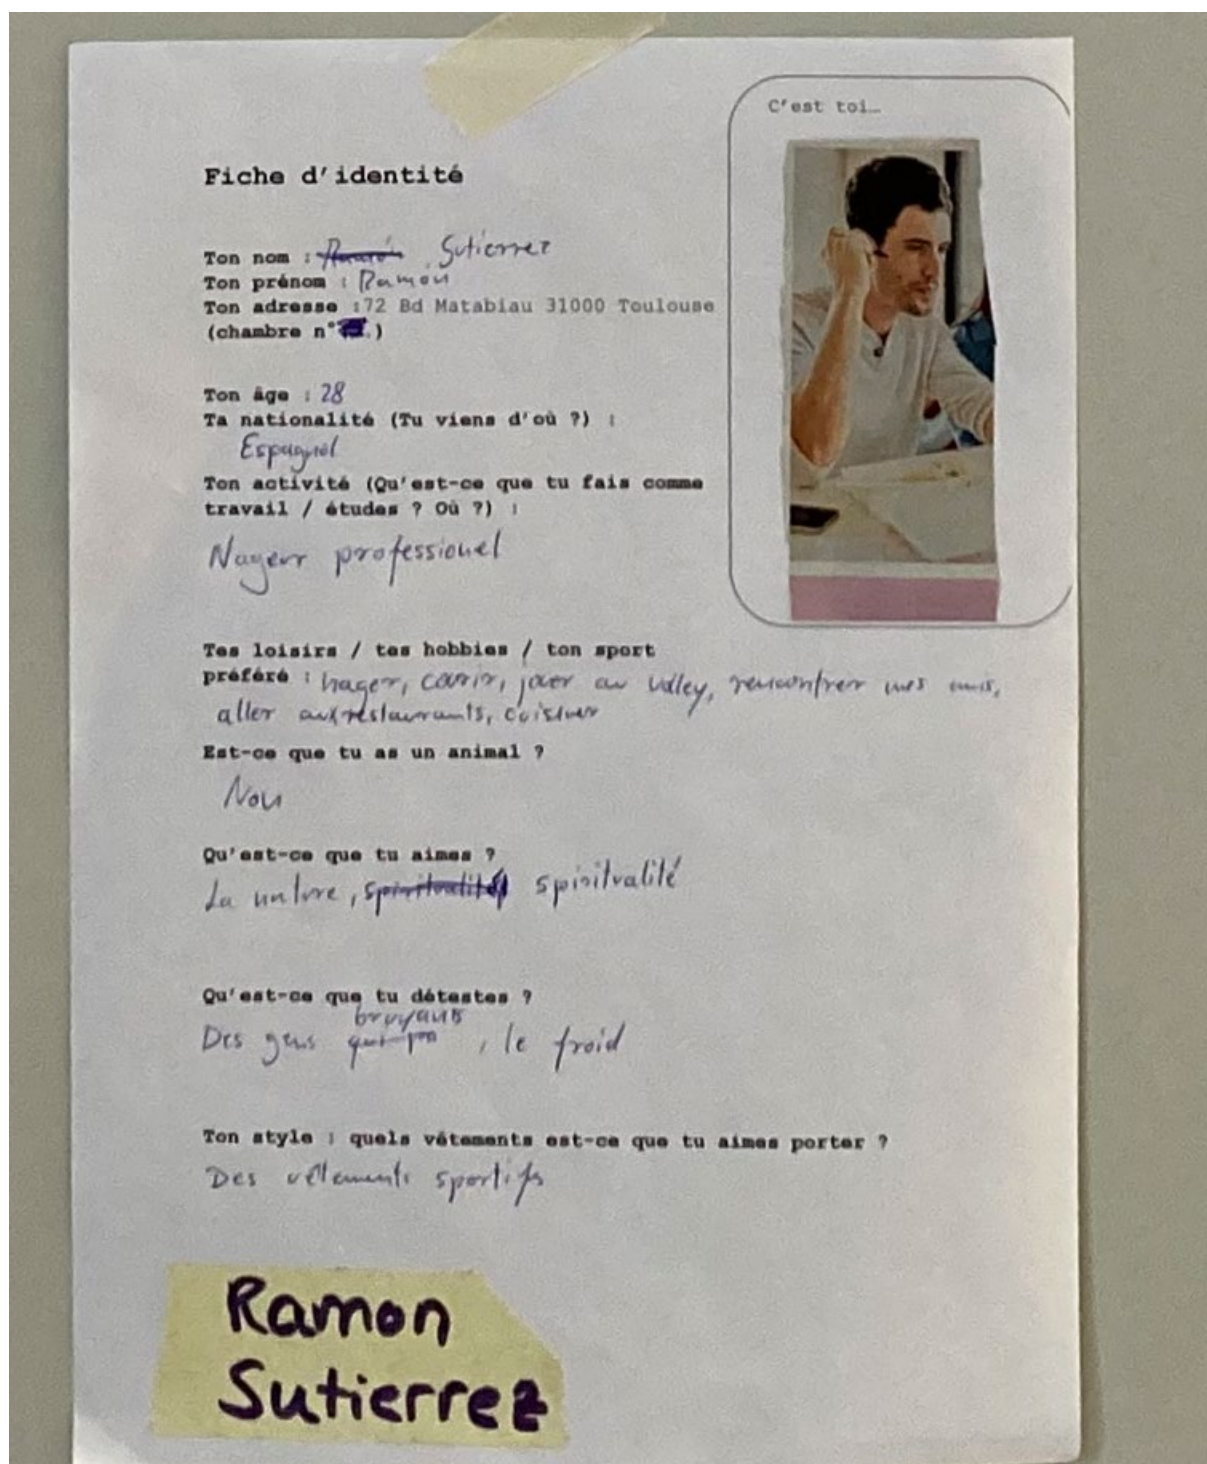 C'est toi…
Fiche d'identité
Ton nom : Ramón Sutierrez
Ton prénom : Ramón
Ton adresse :72 Bd Matabiau 31000 Toulouse
(chambre n° .)
Ton âge : 28
Ta nationalité (Tu viens d'où ?) :
Espagnol
Ton activité (Qu'est-ce que tu fais comme
travail / études ? Où ?) :
Nageur professionel
Tes loisirs / tes hobbies / ton sport
préféré : nager, courir, jouer au volley, rencontrer mes amis,
aller aux restaurants, cuisiner
Est-ce que tu as un animal ?
Non
Qu'est-ce que tu aimes ?
La nature, spiritualité spiritualité
Qu'est-ce que tu détestes ?
bruyants
Des gens , le froid
Ton style : quels vêtements est-ce que tu aimes porter ?
Des vêtements sportifs
Ramon
Sutierrez